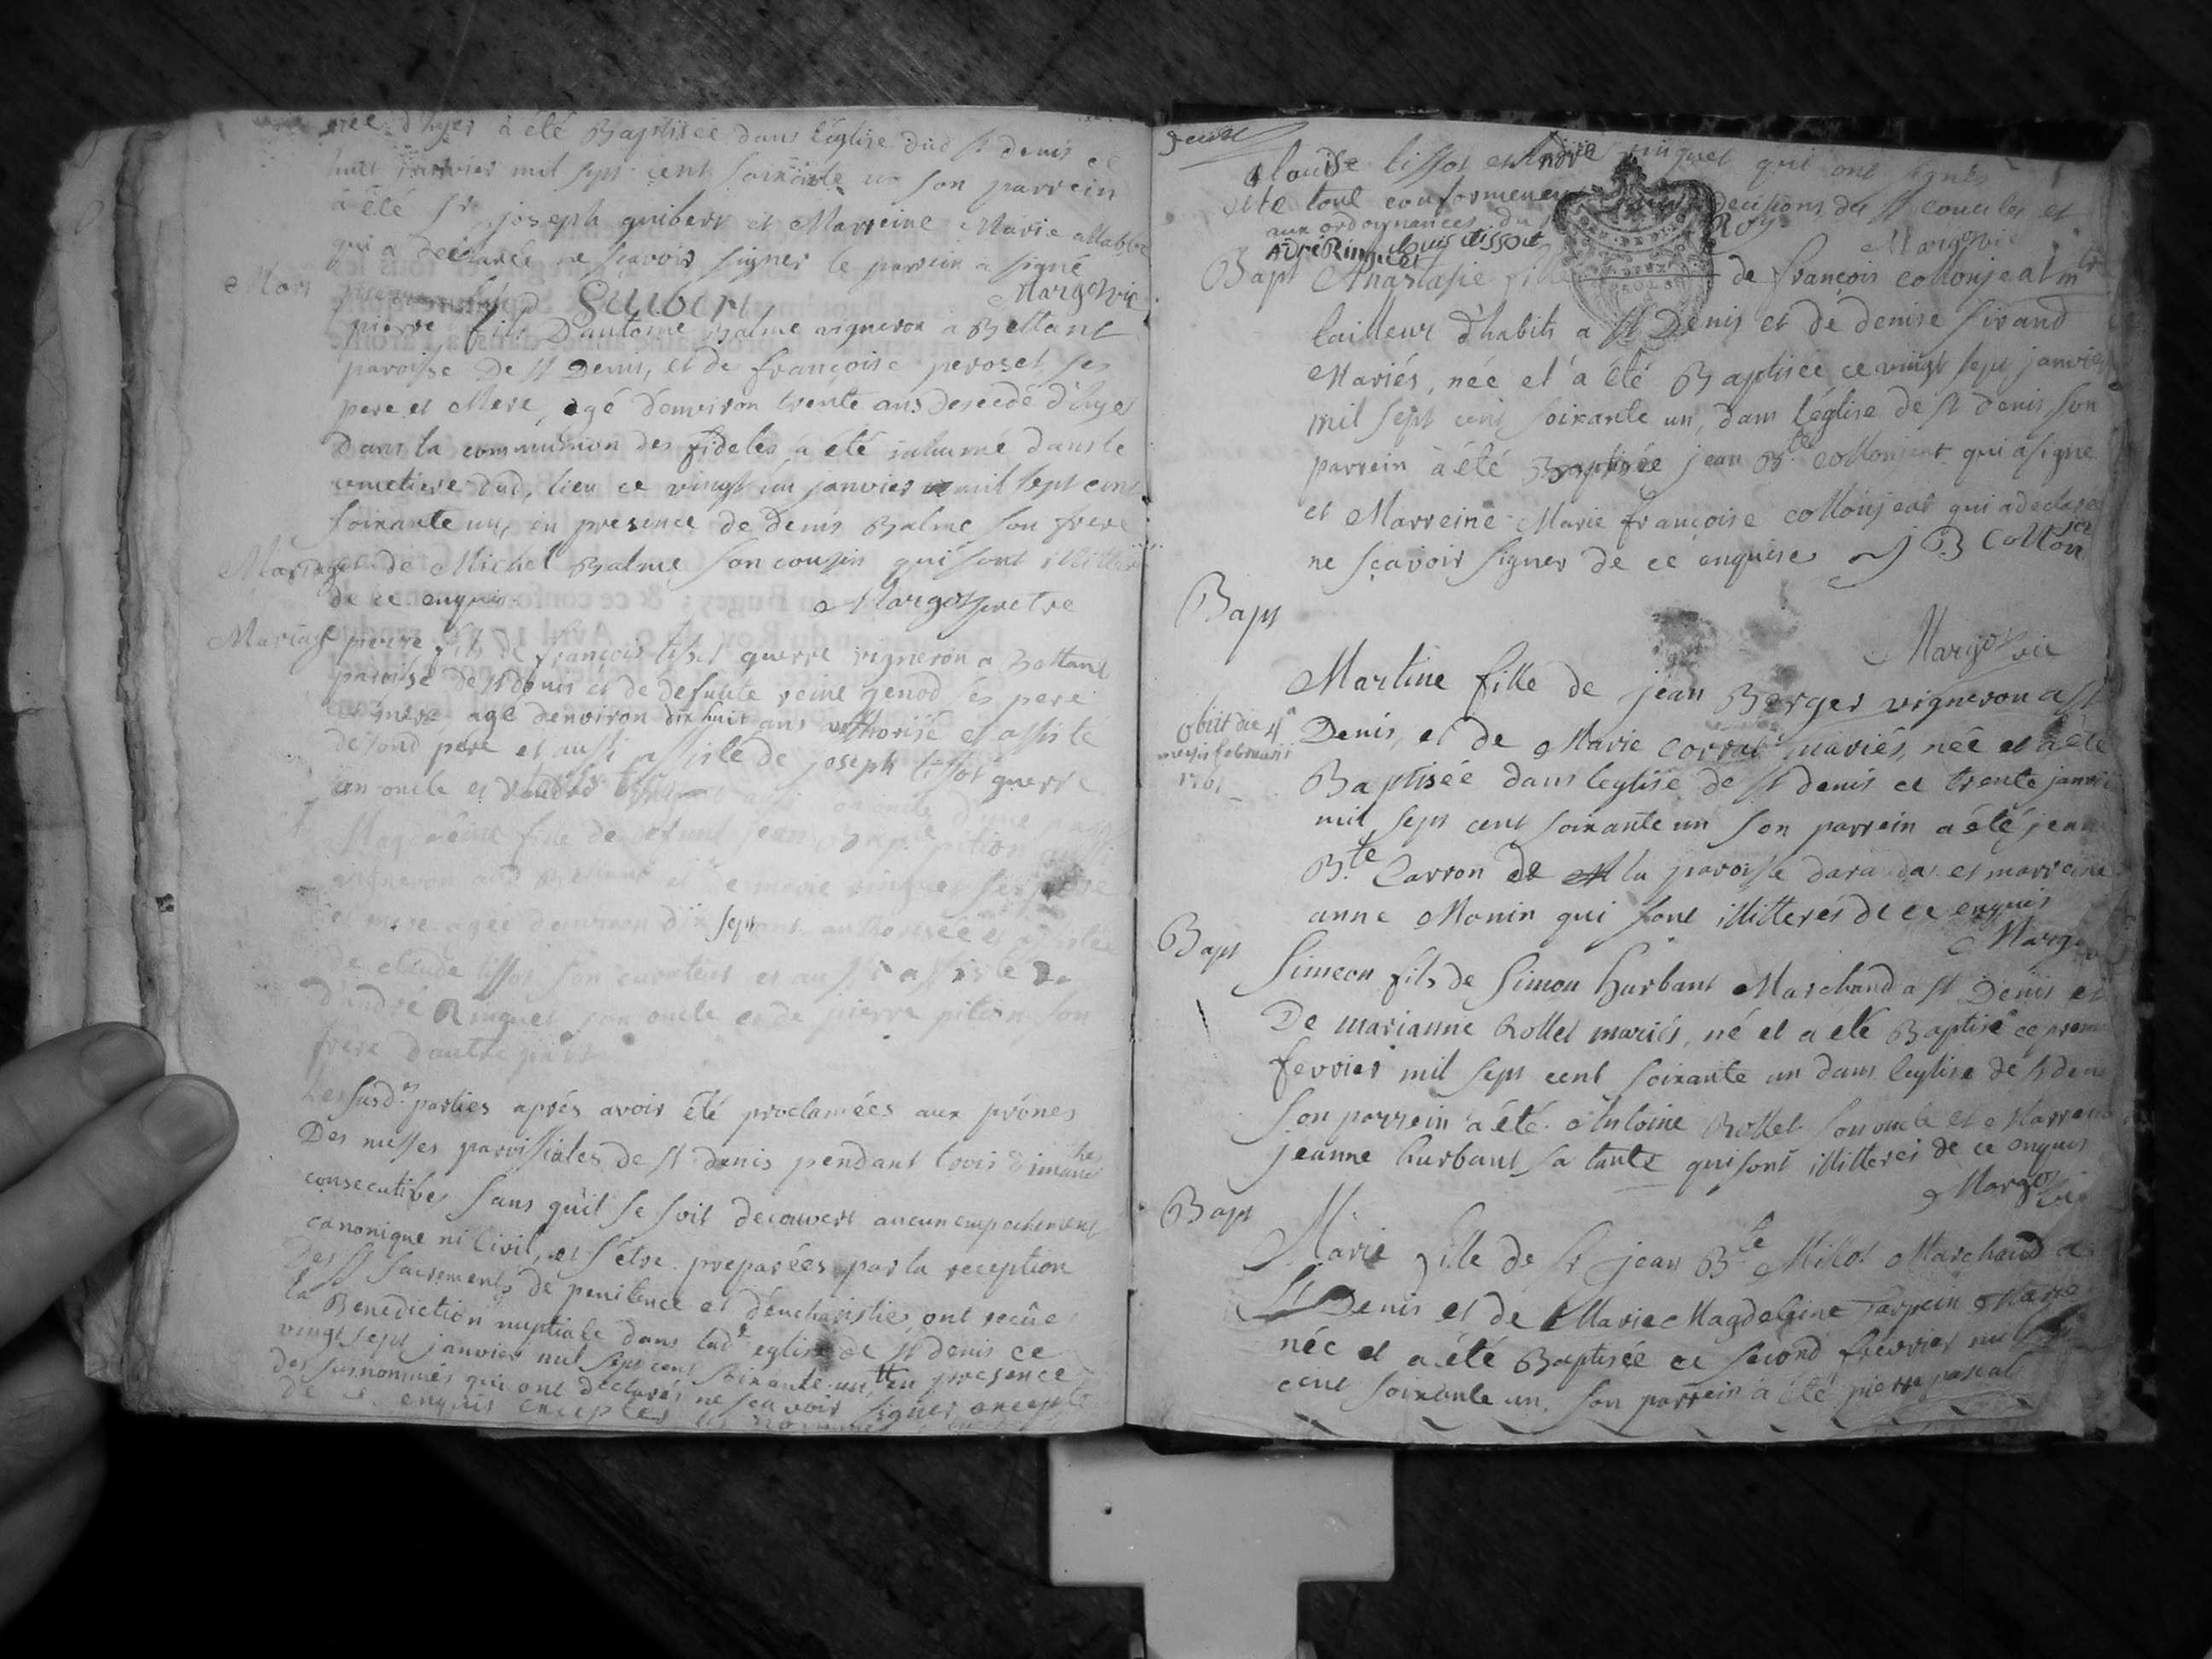 née d'hyer à été Baptisée dans l'église dud st denis ce
huit janvier mil sept cent soixante un son parrein
à été Sr joseph guibert et Marreine Marie
qui a declarée ne sçavoir signer le parrein a signé
Guibert Margot vic
Mort
pierre fils D'antoine Balme vigneron à Bettant
paroisse De st Denis, et de françoise peroset ses
pere et Mere, agé d'environ trente ans decedé d'hyer
Dans la communion des fideles a été inhumé dans le
cemetiere dud, lieu ce vingt un janvier mil sept cent
soixante un, en presence de denis Balme son frere
et de Michel Balme son cousin qui sont illitterés
de ce enquis Margot pretre
Mariage
Mariage pierre fils de françois tissot guerre vigneron a Bettant
paroisse de st denis et de defunte reine genod ses pere
et mere, agé d'environ dix huit ans authorisé et assisté
de sond pere et aussi assisté de joseph tissot guerre
son oncle et d'une part
Et Magdeleine fille de defunt jean Bapte pition
vigneron aud Bettant et ringuet ses pere
et mere agée d'environ dix sept ans authorisée et assistée
de claude tissot son curateur et aussi assistée de
d'andré Ringuet son oncle et de pierre pition son
frere d'autre part
Les susd. parties aprés avoir été proclamées aux prônes
Des messes paroissiales de st denis pendant trois dimanches
consecutives sans qu'il se soit decouvert aucun empechement
canonique ni Civil, et s'être preparées par la reception
Des sts sacrements de penitence et d'eucharistie, ont recûe
la Benediction nuptiale dans lade eglise de st denis ce
vingt sept janvier mil sept cent soixante un, en presence
des susnommés qui ont declarés ne sçavoir signer excepté
de ce enquis exceptés les nommés
Claude tissot et andré ringuet qui ont signés
le tout conformement decisions du st concile et
aux ordonnances du Roy
André Ringuet tissot Margot vic
Bapt Anastasie fille de françois collonjeat mtre
tailleur d'habits a st Denis et de denise sirand
Mariés, née et à été Baptisée ce vingt sept janvier
mil sept cent soixante un, dans l'église de st denis son
parrein à été Baptisée jean Bte collonjeat qui a signé
et Marreine Marie françoise collonjeat qui a declaré
ne sçavoir signer de ce enquise J B Collonjeat
Bapt
Margot vic
Martine fille de jean Berger vigneron a st
obiit die 4a
mensis februarii
1761
Denis, et de Marie Corrat mariés, née et à été
Baptisée dans l'eglise de st denis ce trente janvier
mil sept cent soixante un son parrein a été jean
Bte Carron de la paroisse daranda et marreine
anne Monin qui sont illitterés de ce enquis
Margot
Bapt
Simeon fils de Simon hurbant Marchand a st Denis et
De marianne Rollet mariés, né et a été Baptisé ce premier
fevrier mil sept cent soixante un dans l'eglise de st denis
Son parrein à été Antoine Rollet son oncle et Marreine
jeanne hurbant sa tante qui sont illitterés de ce enquis
Margot vic
Bapt
Marie fille de Sr jean Bte Millot Marchand a
St Denis et de Marie Magdeleine Mariés
née et a été Baptisée ce second fevrier mil sept
cent soixante un. son parrein a été pierre pascal